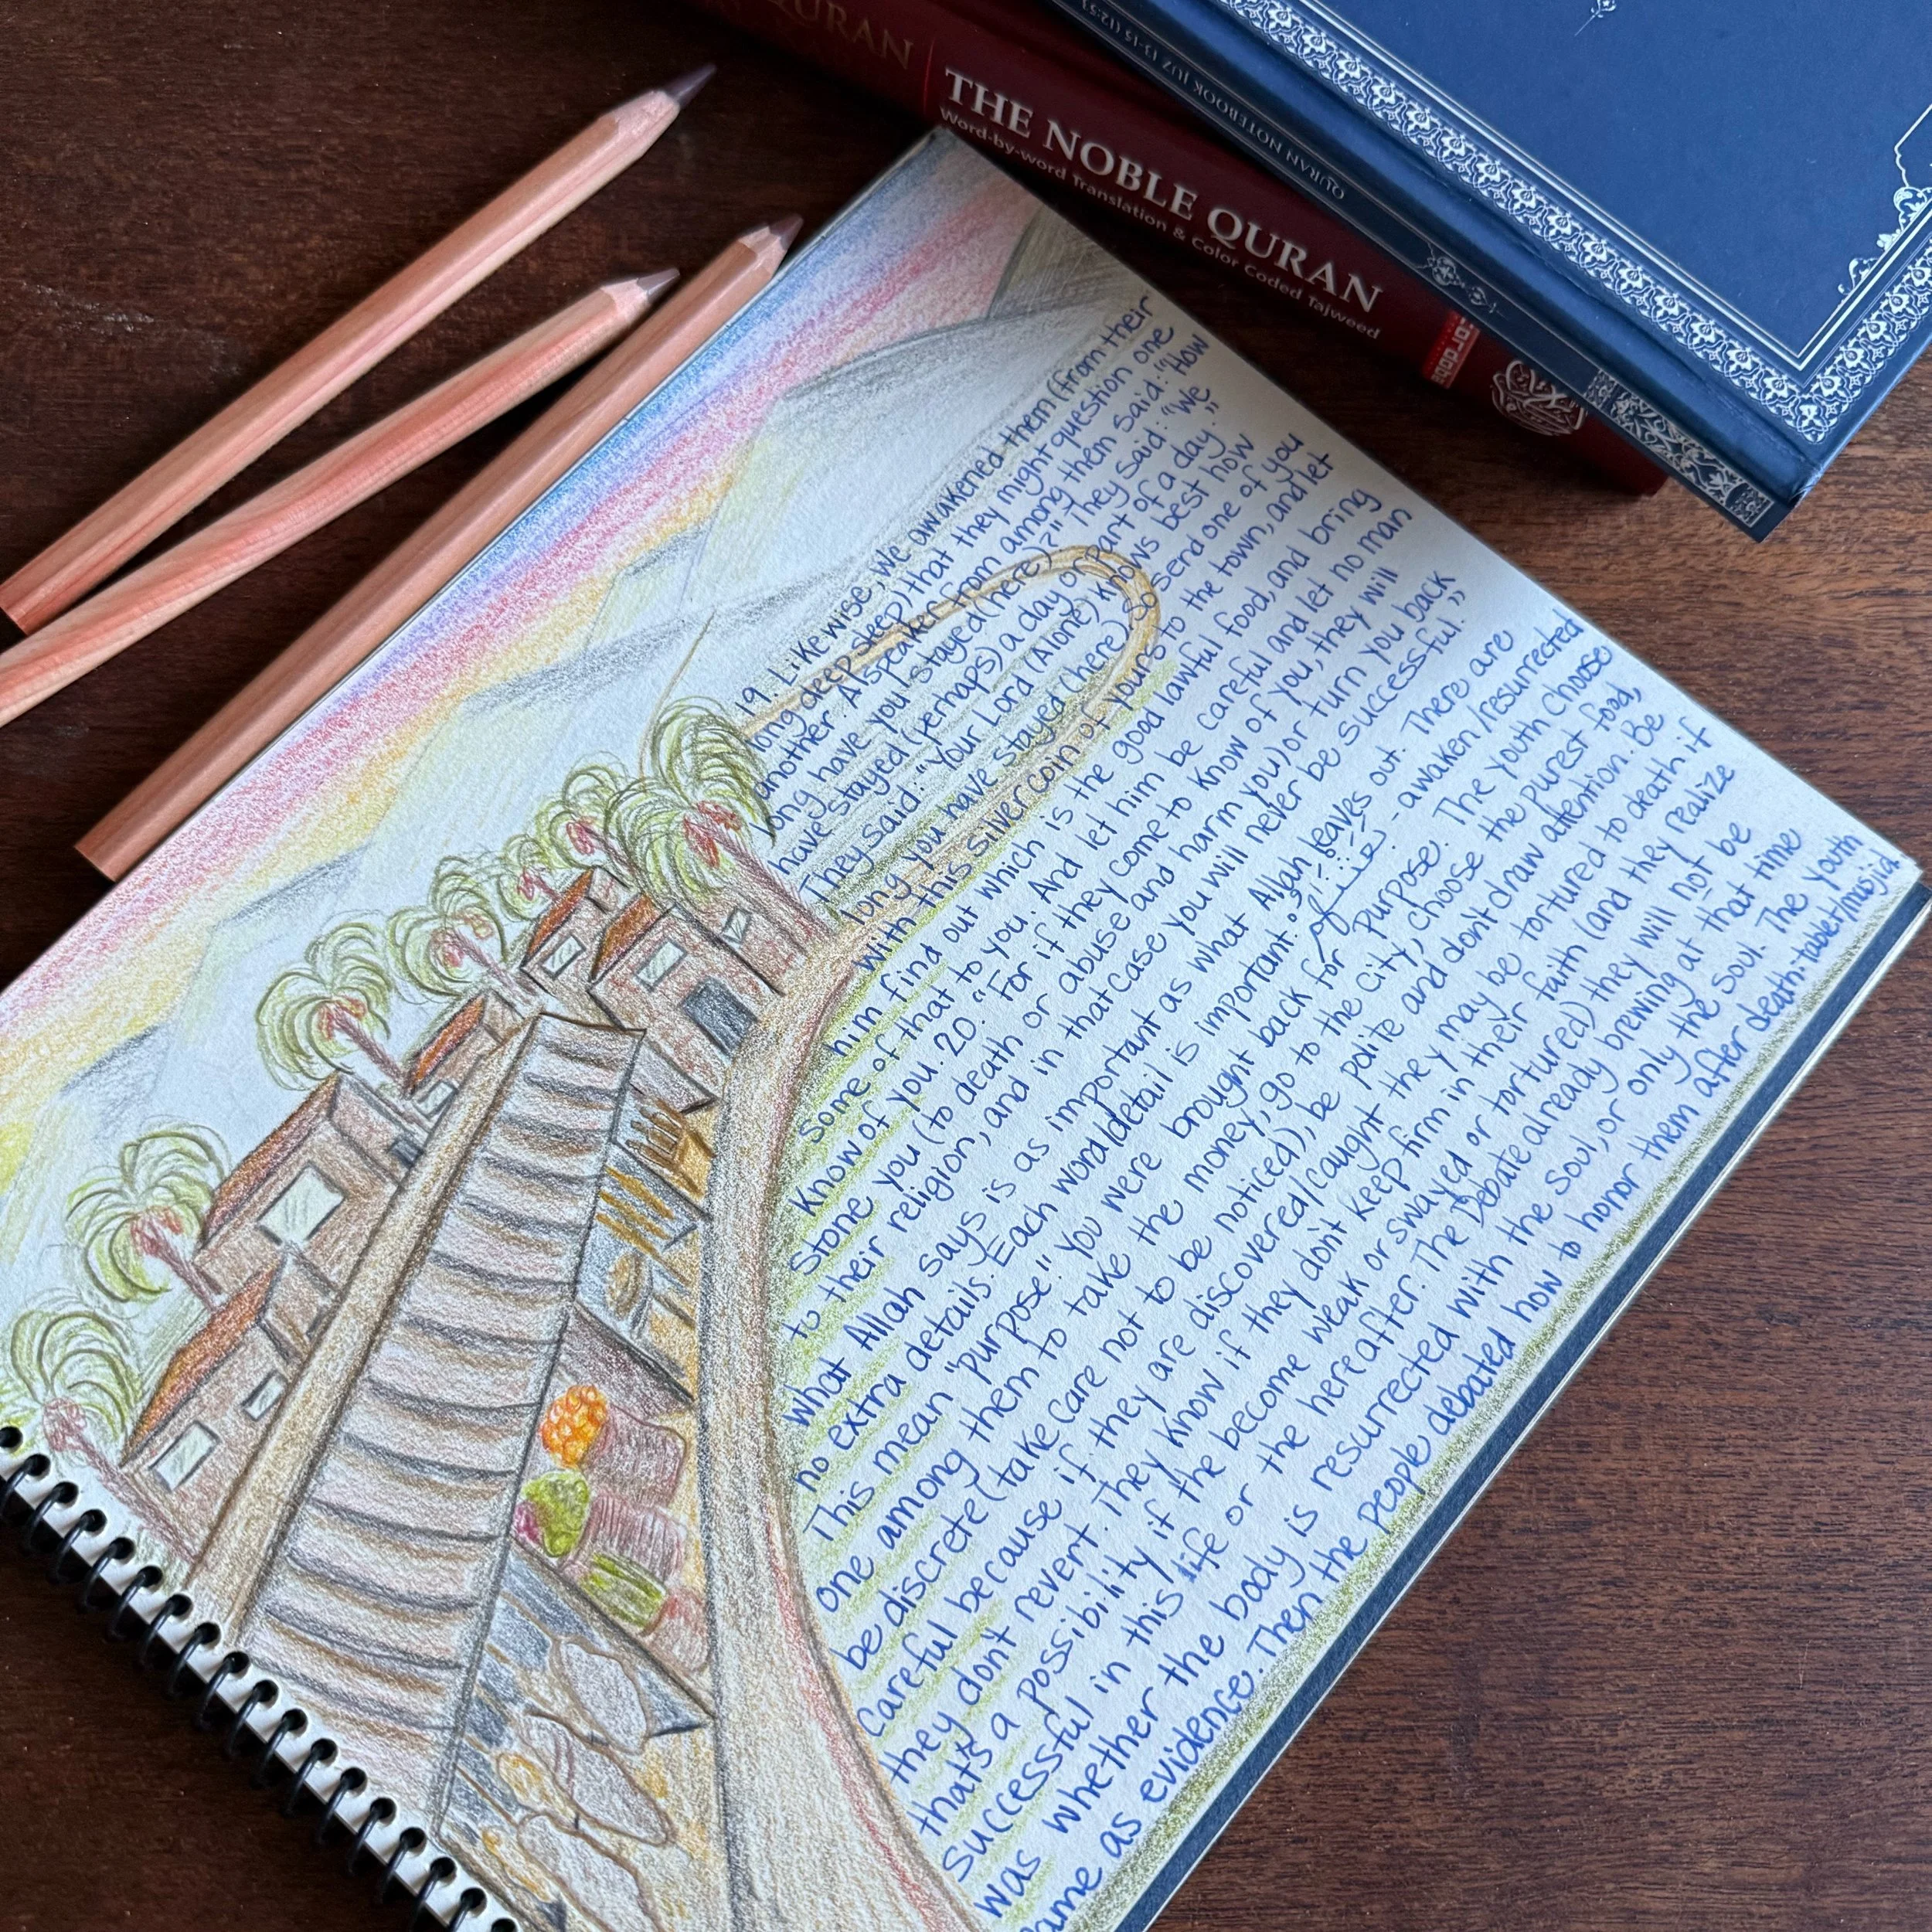 QURAN
THE NOBLE QURAN
Word-by-word Translation & Color Coded Tajweed
cordoba
QURAN NOTEBOOK JUZ 13-15 (12:53
19. Likewise, We awakened them (from their
long deep sleep) that they might question one
another. A speaker from among them said: "How
long have you stayed (here)?" They said: "We
have stayed (perhaps) a day or part of a day."
They said: "Your Lord (Alone) knows best how
long you have stayed (here). So send one of you
with this silver coin of yours to the town, and let
him find out which is the good lawful food, and bring
some of that to you. And let him be careful and let no man
know of you. 20. "For if they come to know of you, they will
stone you (to death or abuse and harm you) or turn you back
to their religion, and in that case you will never be successful."
What Allah says is as important as what Allah leaves out. There are
no extra details. Each word/detail is important. - awaken/resurrected
This mean "purpose." You were brought back for purpose. The youth choose
one among them to take the money, go to the city, choose the purest food,
be discrete (take care not to be noticed), be polite and don't draw attention. Be
Careful because if they are discovered/caught they may be tortured to death if
they don't revert. They know if they don't keep firm in their faith (and they realize
that's a possibility if the become weak or swayed or tortured) they will not be
successful in this life or the hereafter. The Debate already brewing at that time
was whether the body is resurrected with the soul, or only the soul. The youth
ame as evidence. Then the people debated how to honor them after death: tablet/masjid.